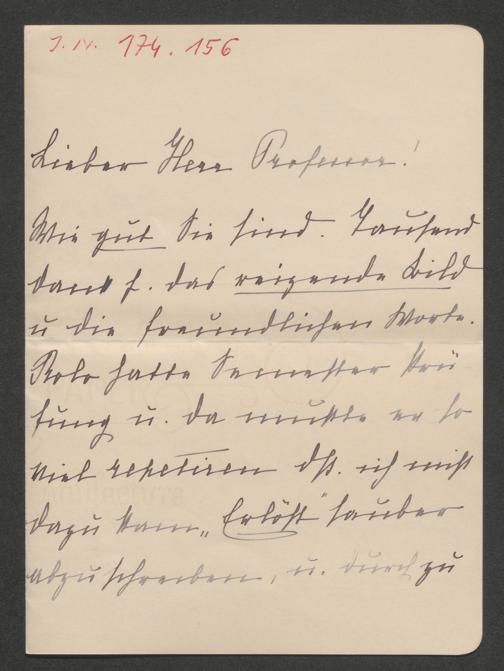 J.N. 174.156
Lieber Herr Professor!
Wie gut Sie sind. Tausend
Dank f. das reizende Bild
u die freundlichen Worte.
Rolo hatte Semester Prü
fung u. da mußte er so
viel repetiren dß. ich nicht
dazu kam „Erlöst" sauber
abzuschreiben, u. durchzu